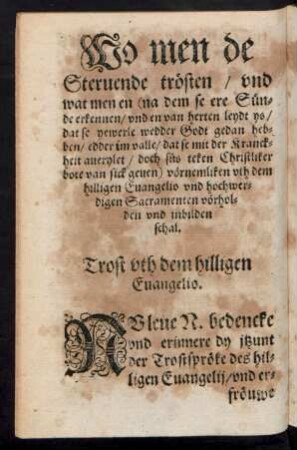 Wo men de
Steruende trösten / vnd
wat men en (na dem se ere Sün⸗
de erkennen / vnd en van herten leydt ys /
dat se yewerle wedder Godt gedan heb⸗
ben / edder im valle / dat se mit der Kranck⸗
heit auerylet / doch süs teken Christliker
bote van sick geuen) vörnemliken vth dem
hilligen Euangelio vnd hochwer⸗
digen Sacramenten vörhol⸗
den vnd inbilden
schal.
Trost vth dem hilligen
Euangelio.
NVleue N. bedencke
vnd erinnere dy itzunt
der Trostspröke des hil⸗
ligen Euangelij / vnd er⸗
fröuwe